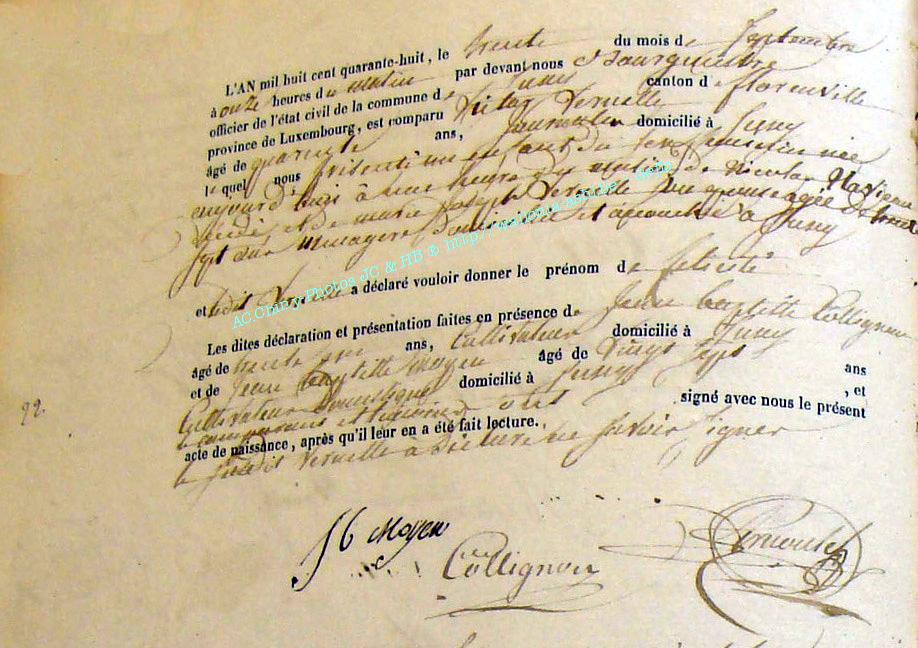 L'AN mil huit cent quarante-huit, le trente du mois de Septembre
à onze heures du matin par devant nous Bourgmestre
officier de l'état civil de la commune de Suny canton de florenville
province de Luxembourg, est comparu Victor Vernelle
âgé de quarante ans, journalier domicilié à Suny
lequel nous a présenté un enfant du sexe féminin née
aujourd'hui à heure du matin de Nicolas
et de marie joseph Vernelle son épouse agée de
sept ans menagere domiciliée et accouchée à Suny
et ledit Vernelle a déclaré vouloir donner le prénom de felicité
Les dites déclaration et présentation faites en présence de Jean baptiste Collignon
âgé de trente ans, Cultivateur domicilié à Suny
et de Jean baptiste moyen âgé de vingt sept ans
Cultivateur domestique domicilié à Suny , et
le comparant et témoins ont signé avec nous le présent
acte de naissance, après qu'il leur en a été fait lecture.
le susdit Vernelle a déclaré ne savoir signer
22.
AC.Chiny Photos JC & HB @ http://
JB Moyen
Collignon